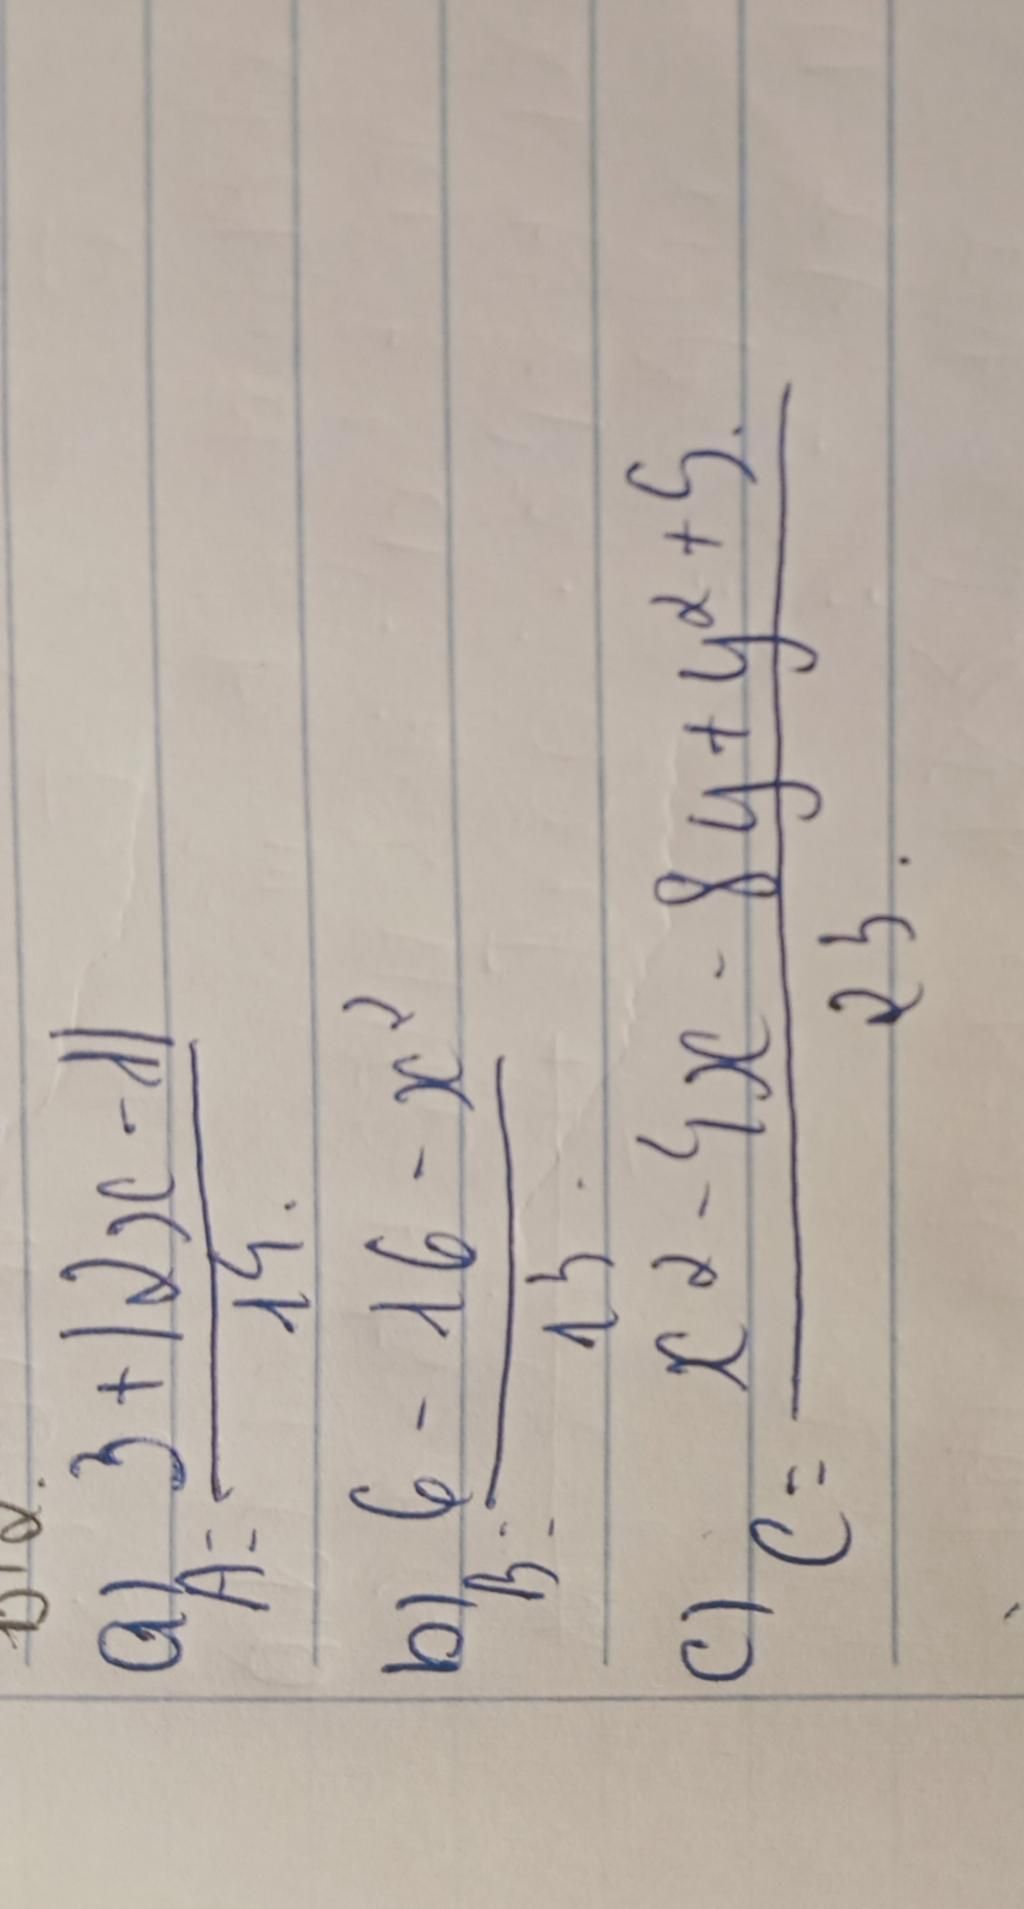 a) A = \frac{3 + |2x - 1|}{14}.
b) B = \frac{6 - 16 - x^2}{13}.
c) C = \frac{x^2 - 4x - 8y + y^2 + 5.}{23}.